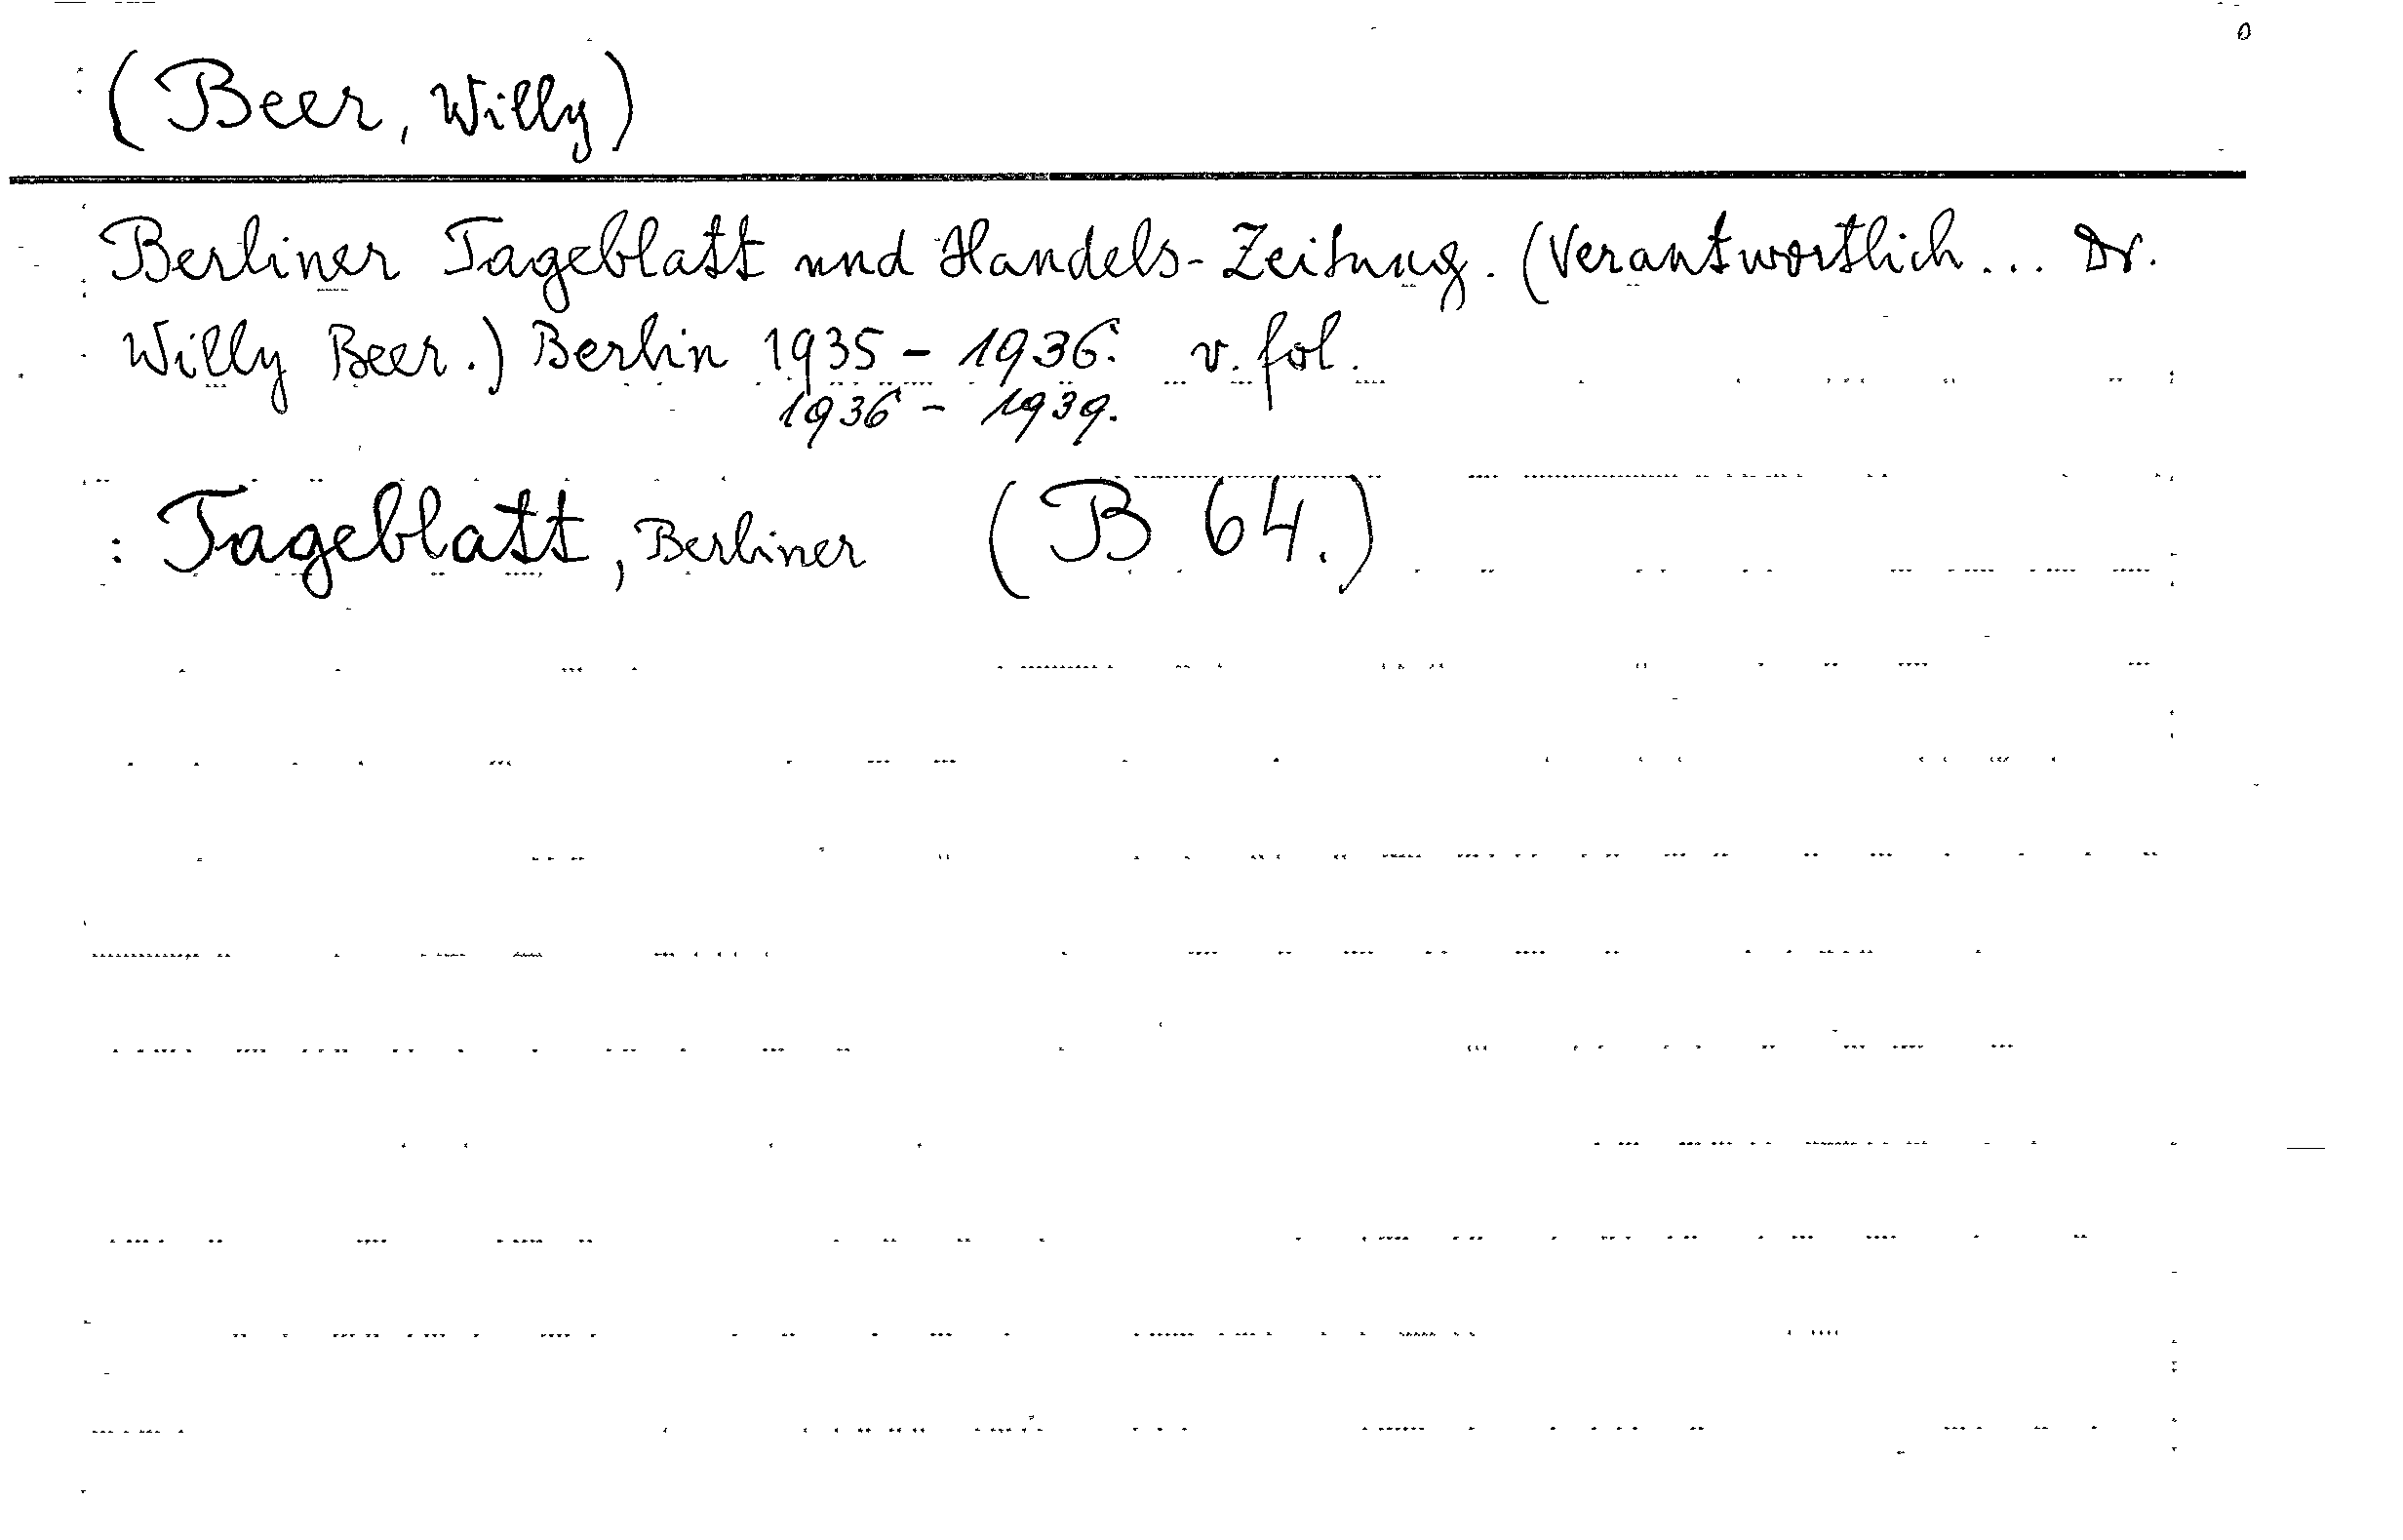 (Beer, Willy)
Berliner Tageblatt und Handels-Zeitung. (Verantwortlich... Dr.
Willy Beer.) Berlin 1935 - 1936. v. fol.
1936 - 1939.
: Tageblatt, Berliner (B 64.)